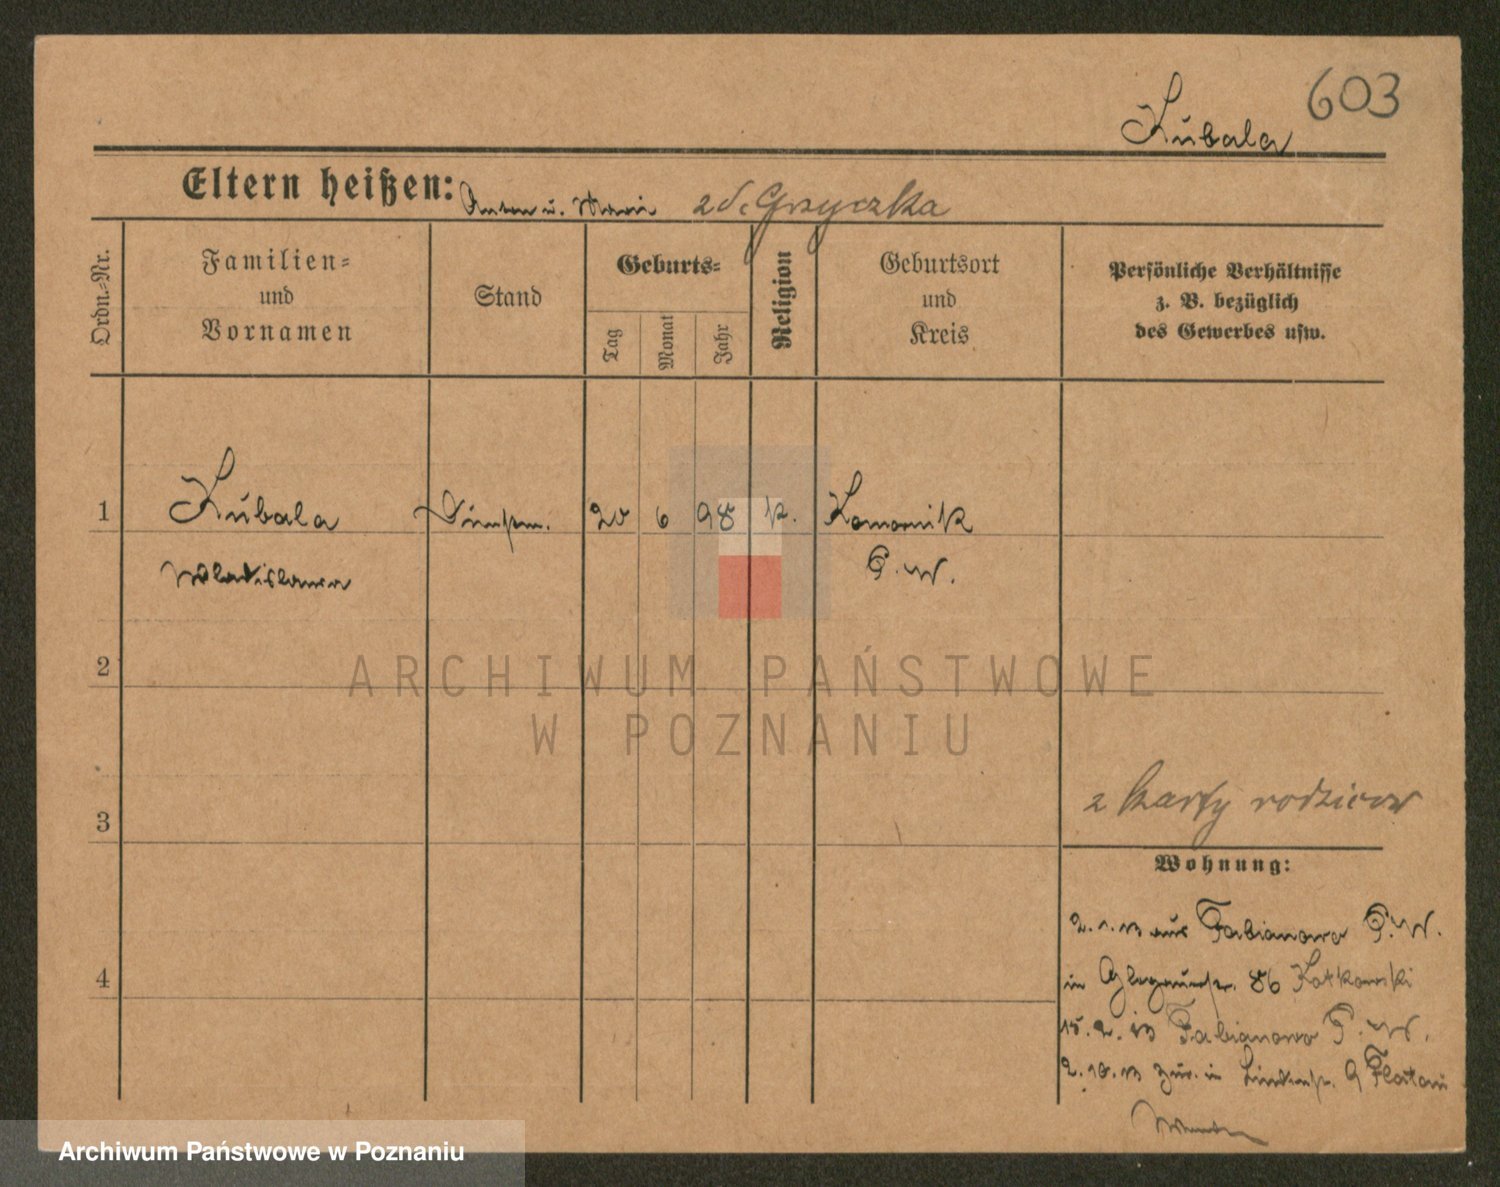 603
Kubala
Eltern heißen: Anton u. Marie z d. Gryczka
Ordn.-Nr.
Familien-
und
Vornamen
Stand
Geburts-
Tag
Monat
Jahr
Religion
Geburtsort
und
Kreis
Persönliche Verhältnisse
z. B. bezüglich
des Gewerbes usw.
1
Kubala
20 6 98 k.
Komornik
Wladislawa
P. W.
2
ARCHIWUM PAŃSTWOWE
W POZNANIU
z karty rodziców
3
Wohnung:
2.1.13 aus Fabianowo P. W.
4
in 86 Kotkowski
15.2.13 Fabianowo P. W.
2.10.13 zur. in Lindenstr. 9 Flatau
Archiwum Państwowe w Poznaniu